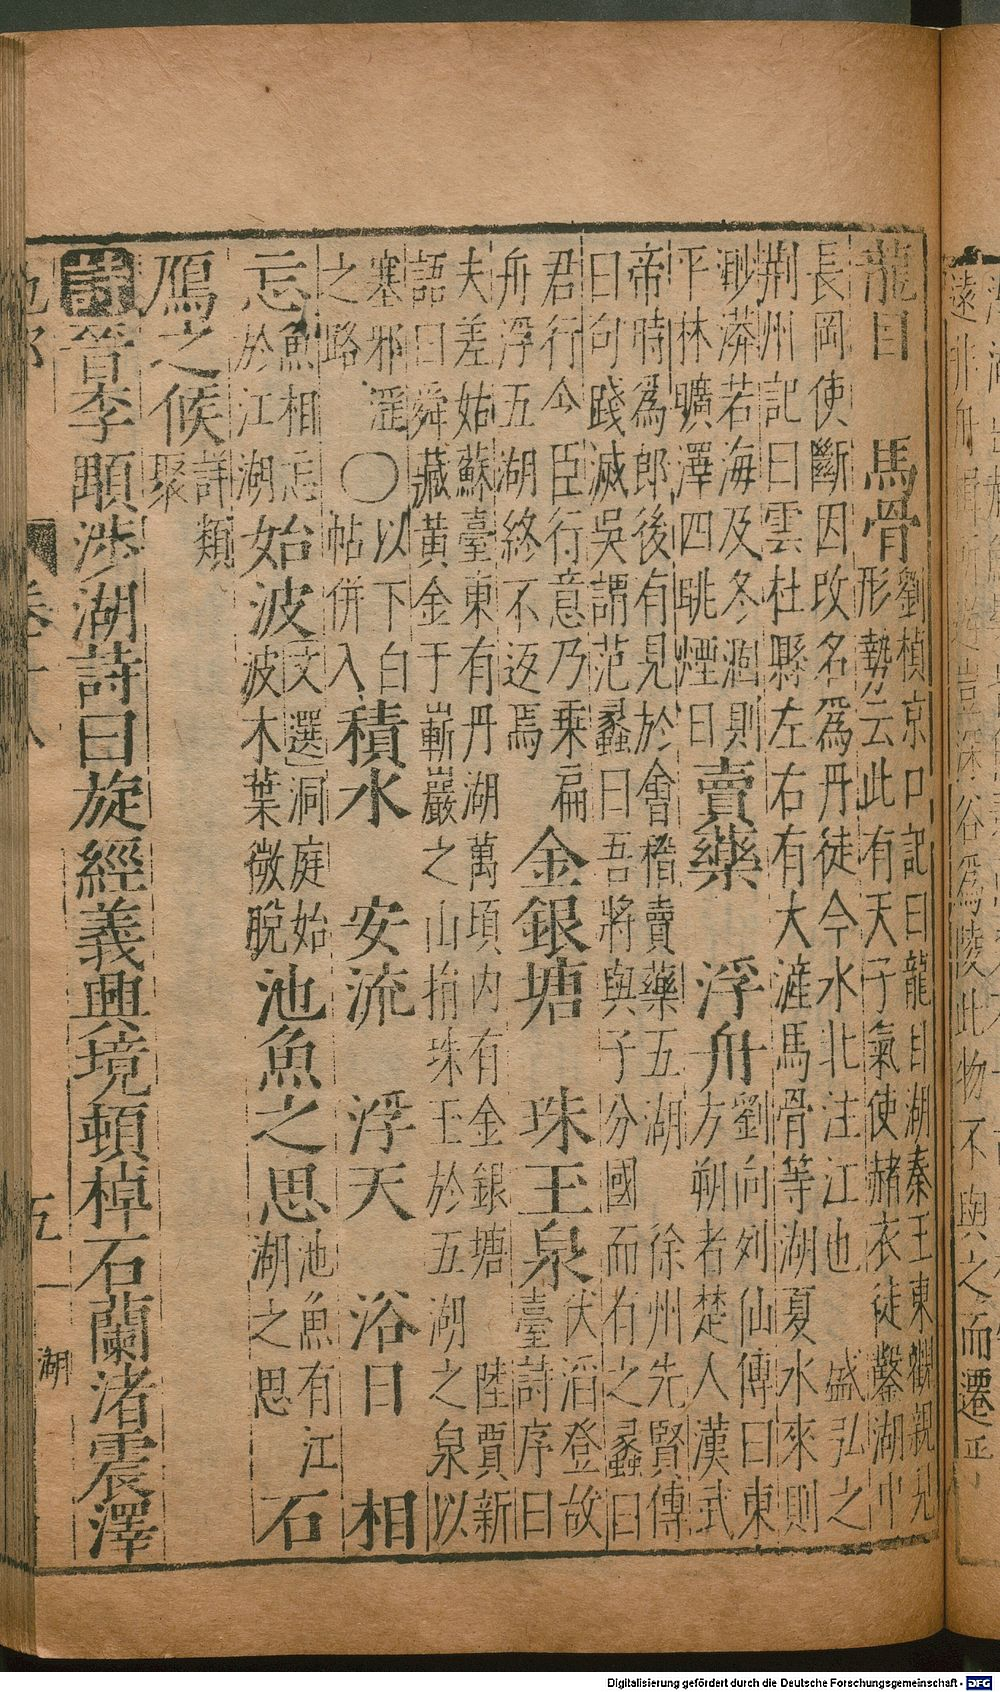 龍目　馬骨劉楨京口記曰龍目湖秦王東觀親見
形勢云此有天子氣使赭衣徒鑿湖中
長岡使斷因改名爲丹徒今水北注江也　盛弘之
荆州記曰雲杜縣左右有大滻馬骨等湖夏水來則
渺漭若海及冬涸則
平林曠澤四眺煙日
賣藥　浮舟劉向列仙傳曰東
方朔者楚人漢武
帝時爲郎後有見於會稽賣藥五湖　徐州先賢傳
曰句踐滅吳謂范蠡曰吾將與子分國而有之蠡曰
君行令臣行意乃乗扁
舟浮五湖終不返焉
金銀塘　珠玉泉伏滔登故
臺詩序曰
夫差姑蘇臺東有丹湖萬頃内有金銀塘　陸賈新
語曰舜藏黃金于嶄巖之山捐珠玉於五湖之泉以
塞邪淫
之路
○以下白
帖併入
積水　安流　浮天　浴日　相
忘魚相忘
於江湖
始波文選洞庭始
波木葉微脫
池魚之思池魚有江
湖之思
石
鴈之候詳類
聚
詩晉李顒涉湖詩曰旋經義興境頓棹石蘭渚震澤
卷十八
五
湖
谷爲陵此物不與之而遷
Digitalisierung gefördert durch die Deutsche Forschungsgemeinschaft - DFG